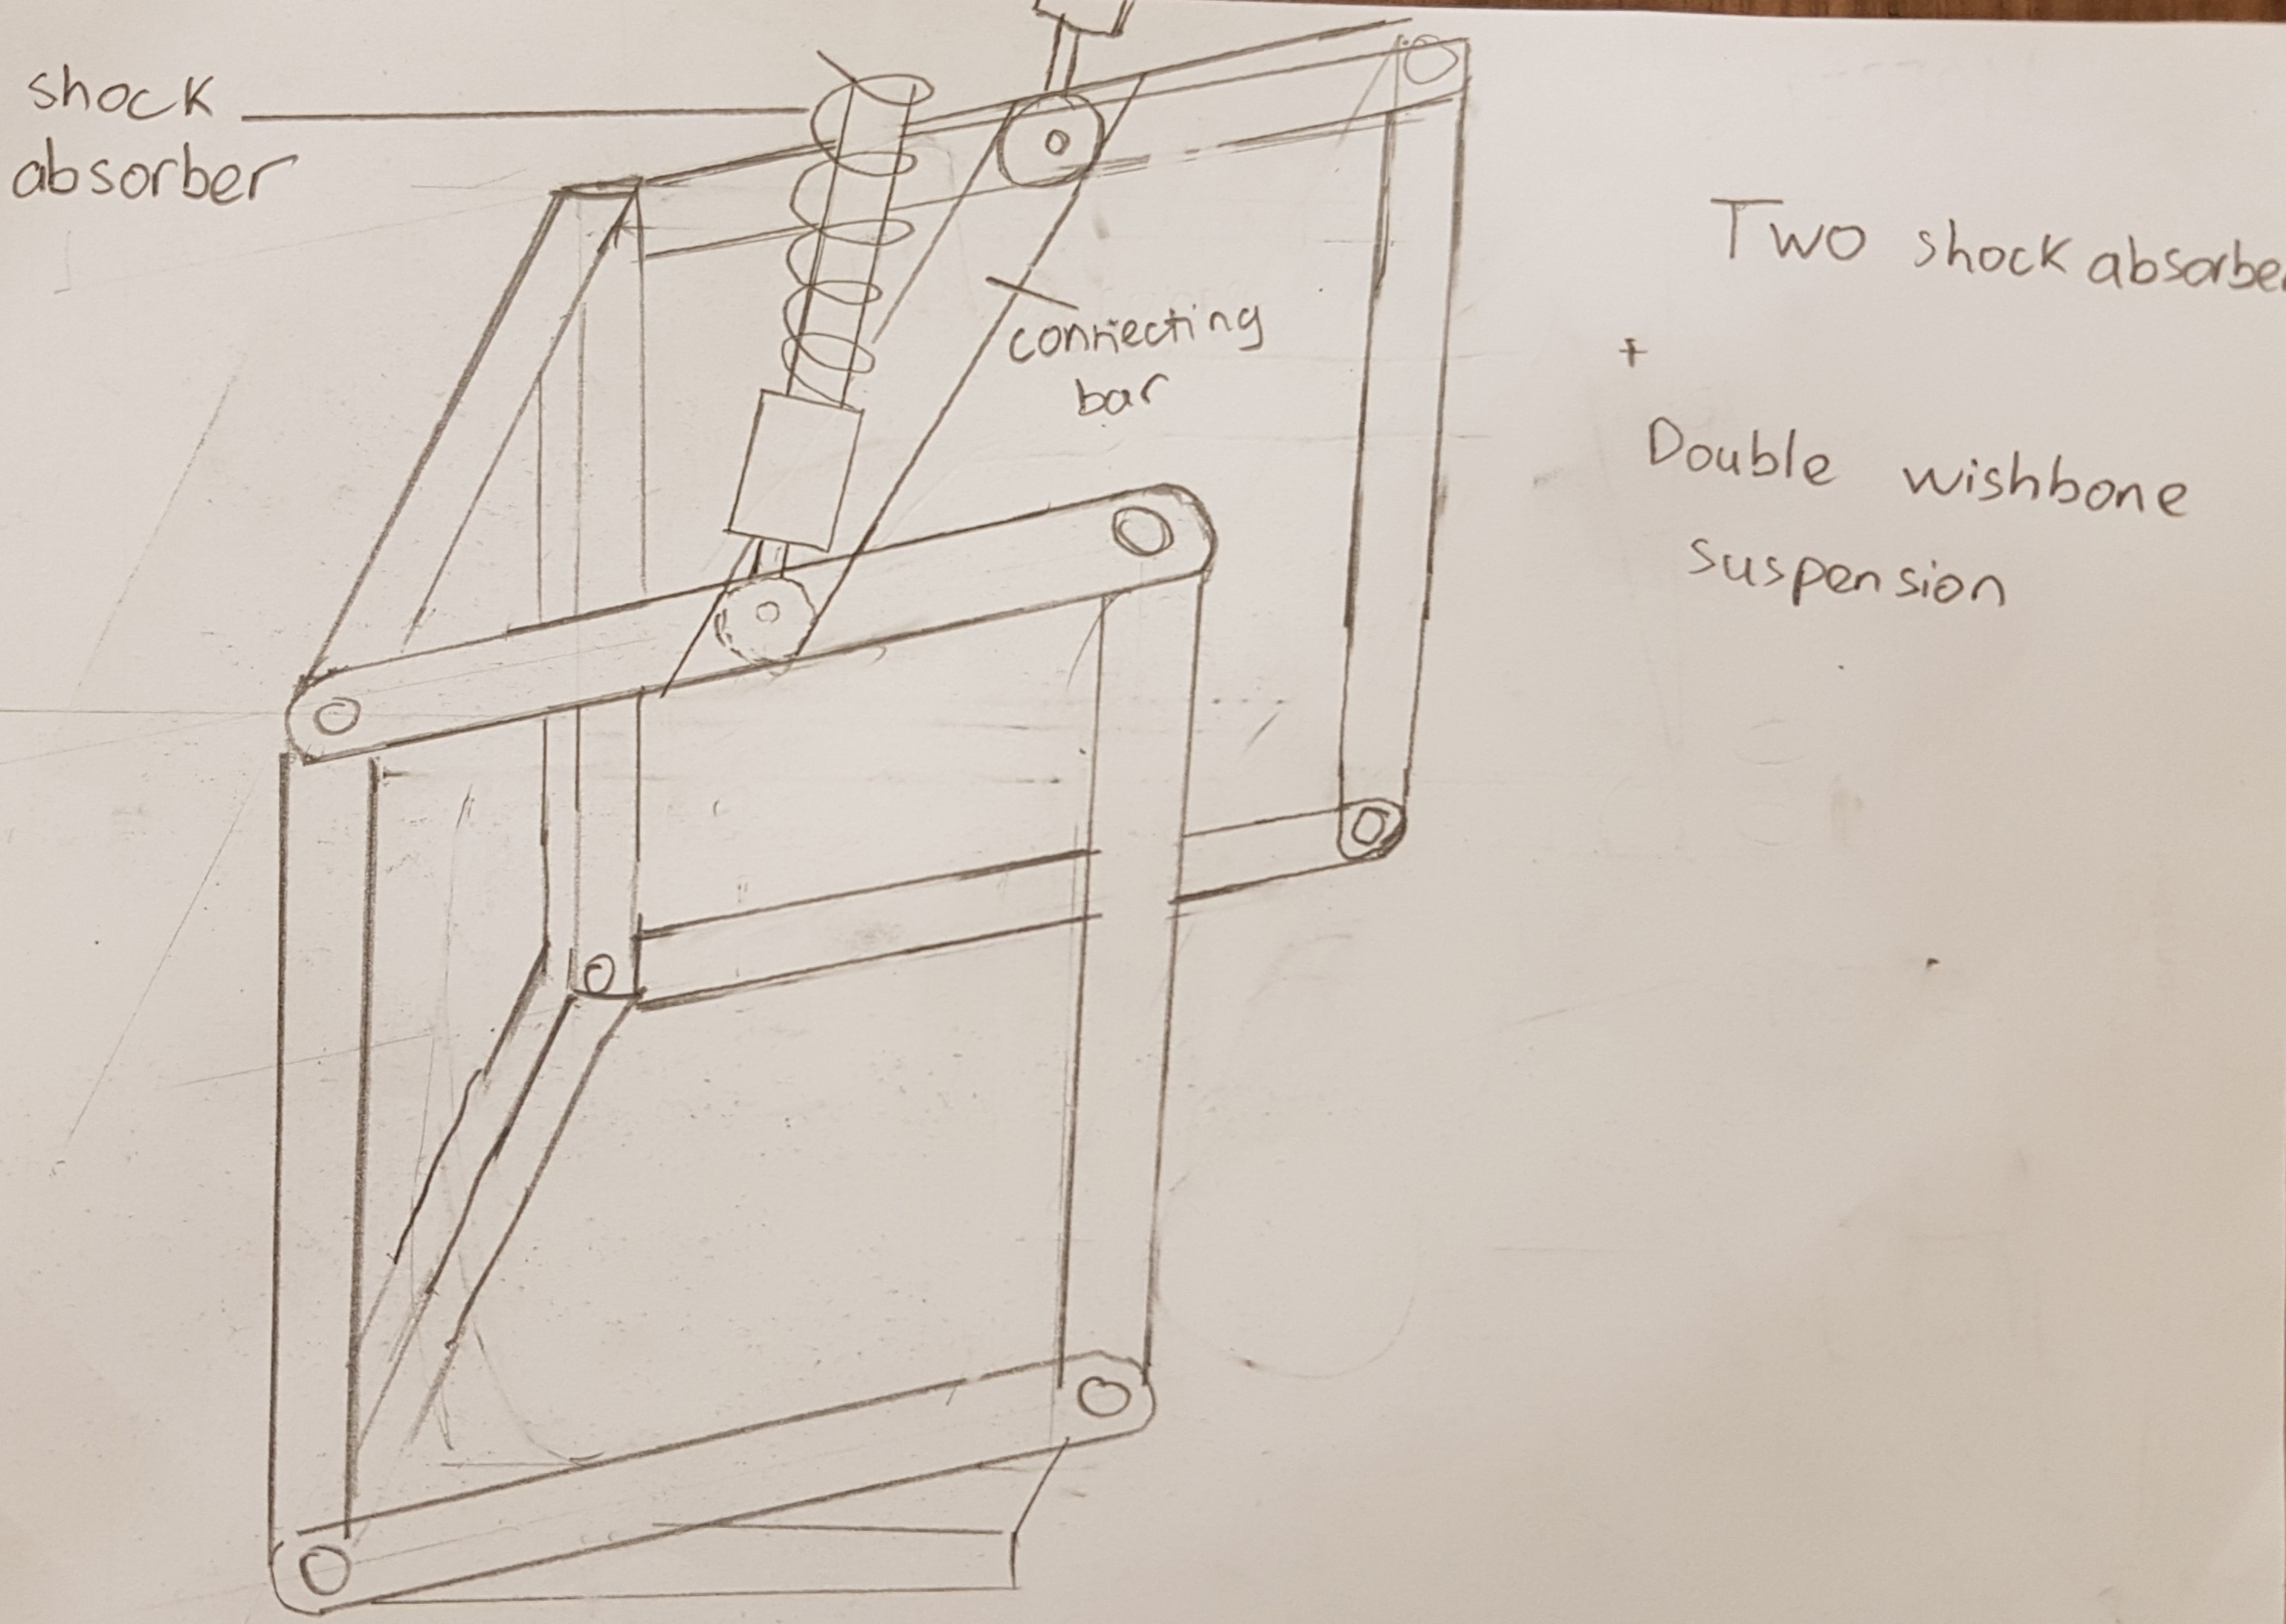 shock
absorber
connecting
bar
Two shock absorber
+
Double wishbone
suspension